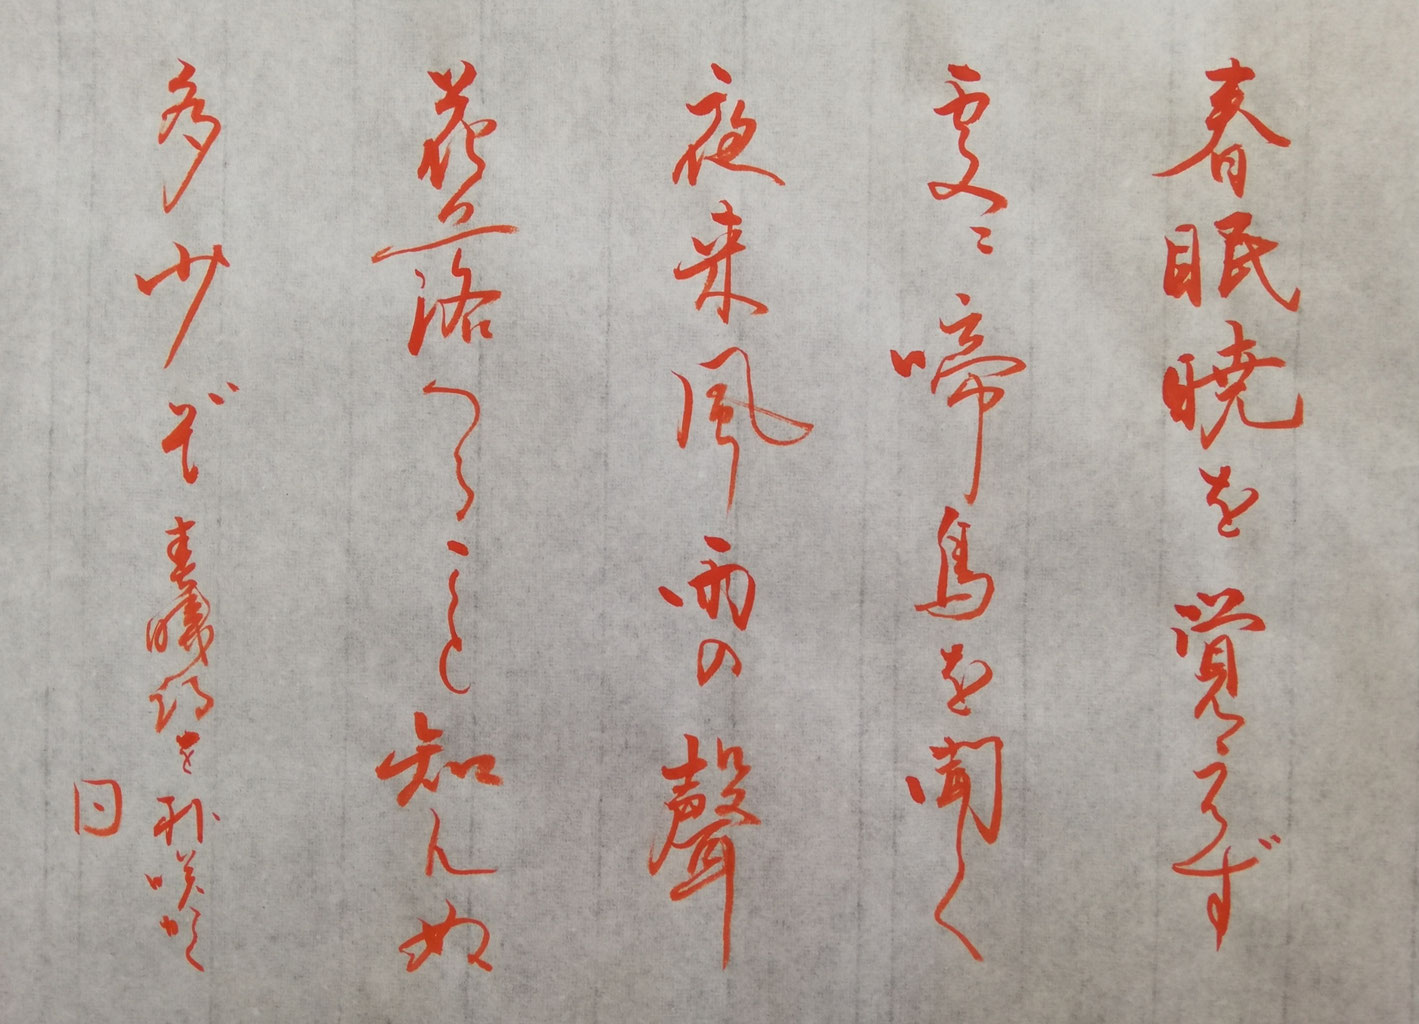 春眠暁を覚えず
處々啼鳥を聞く
夜来風雨の聲
花落つること知んぬ
多少ぞ 春暁詩を